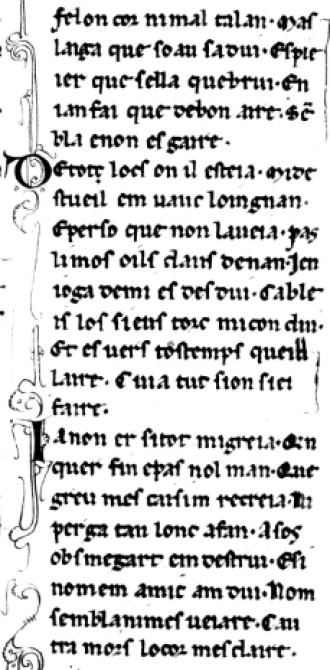 felon cor ni mal talan · Mas
laiga que soau sadui · Espie
ier que sella quebrui · En
ianfai que debon aire · Sẽ
bla enon esgaire ·
De totz locs on il esteia · Mide
stueil em uauc loingnan ·
Eperso que non laueia · pas
li mos oils claus denan · Jen
ioga demi es des dui · Cable
is los sieus torc mi con dui ·
Et es uers tostemps queill
laire · Cuia tut sion siei
faire ·
Ia non er sitot migreia · An
quer fin epas nol man · Que
greu mes caisim recreia · Ni
perga tan lonc afan · Asos
obs megart em destrui · Esi
nomem amic am dui · Nom
semblanimes ueiaire · Cau
tra mors locor mesclaire ·